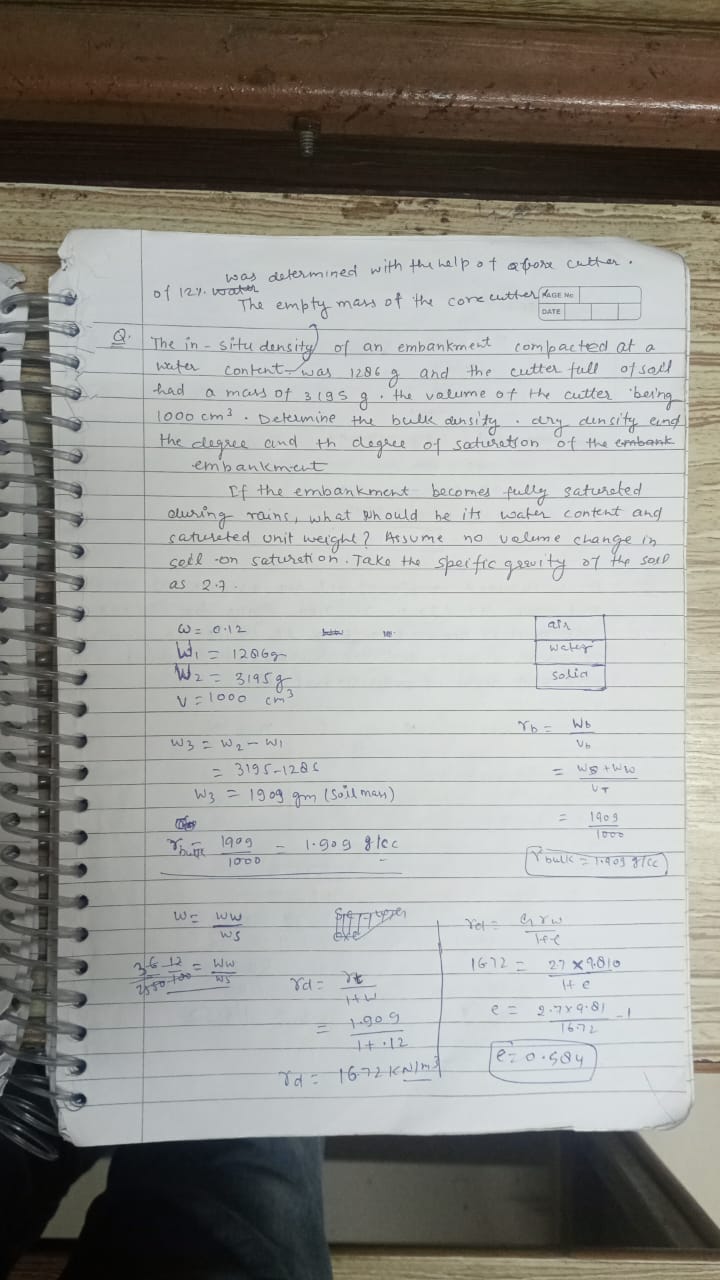 was determined with the help of a core cutter.
of 12% water
The empty mass of the core cutter
PAGE No
DATE
Q. The in-situ density of an embankment compacted at a
water content was 1286 g and the cutter full of soil
had a mass of 3195 g. the volume of the cutter being
1000 cm³. Determine the bulk density. dry density and
the degree and th degree of saturation of the embank
embankment
If the embankment becomes fully saturated
during rains, what whould be its water content and
saturated unit weight? Assume no volume change in
soil on saturation. Take the speific gravity of the soil
as 2.7.
ω = 0.12
W1 = 1286g
W2 = 3195g
V = 1000 cm³
air
water
solid
W3 = W2 - W1
= 3195-1286
W3 = 1909 gm (Soil mass)
γbulk = 1909/1000 = 1.909 g/cc
γb = Wb/Vb
= Ws + Ww/VT
= 1909/1000
γbulk = 1.909 g/cc
W = Ww/Ws
12/100 = Ww/Ws
γd = γt/1+w
= 1.909/1+.12
γd = 16.72 kN/m³
γd = Gγw/1+e
16.72 = 2.7 × 9.810/1+e
e = 2.7×9.81/16.72 - 1
e = 0.584